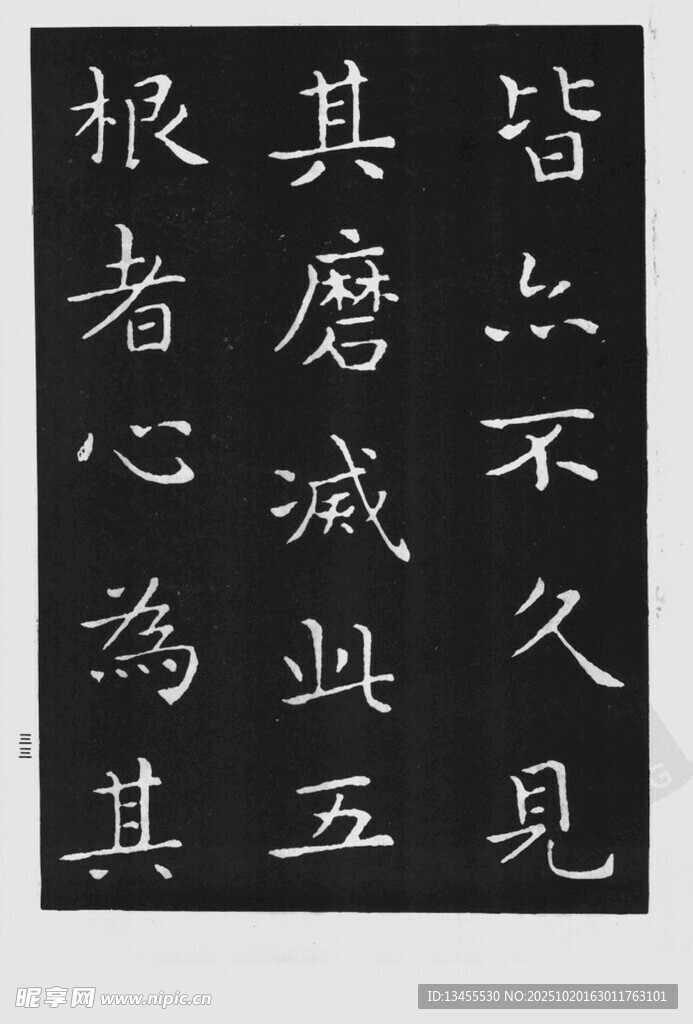 皆亦不久見
其磨滅此五
根者心為其
三三
昵享网 www.nipic.cn
ID:13455530 NO:20251020163011763101